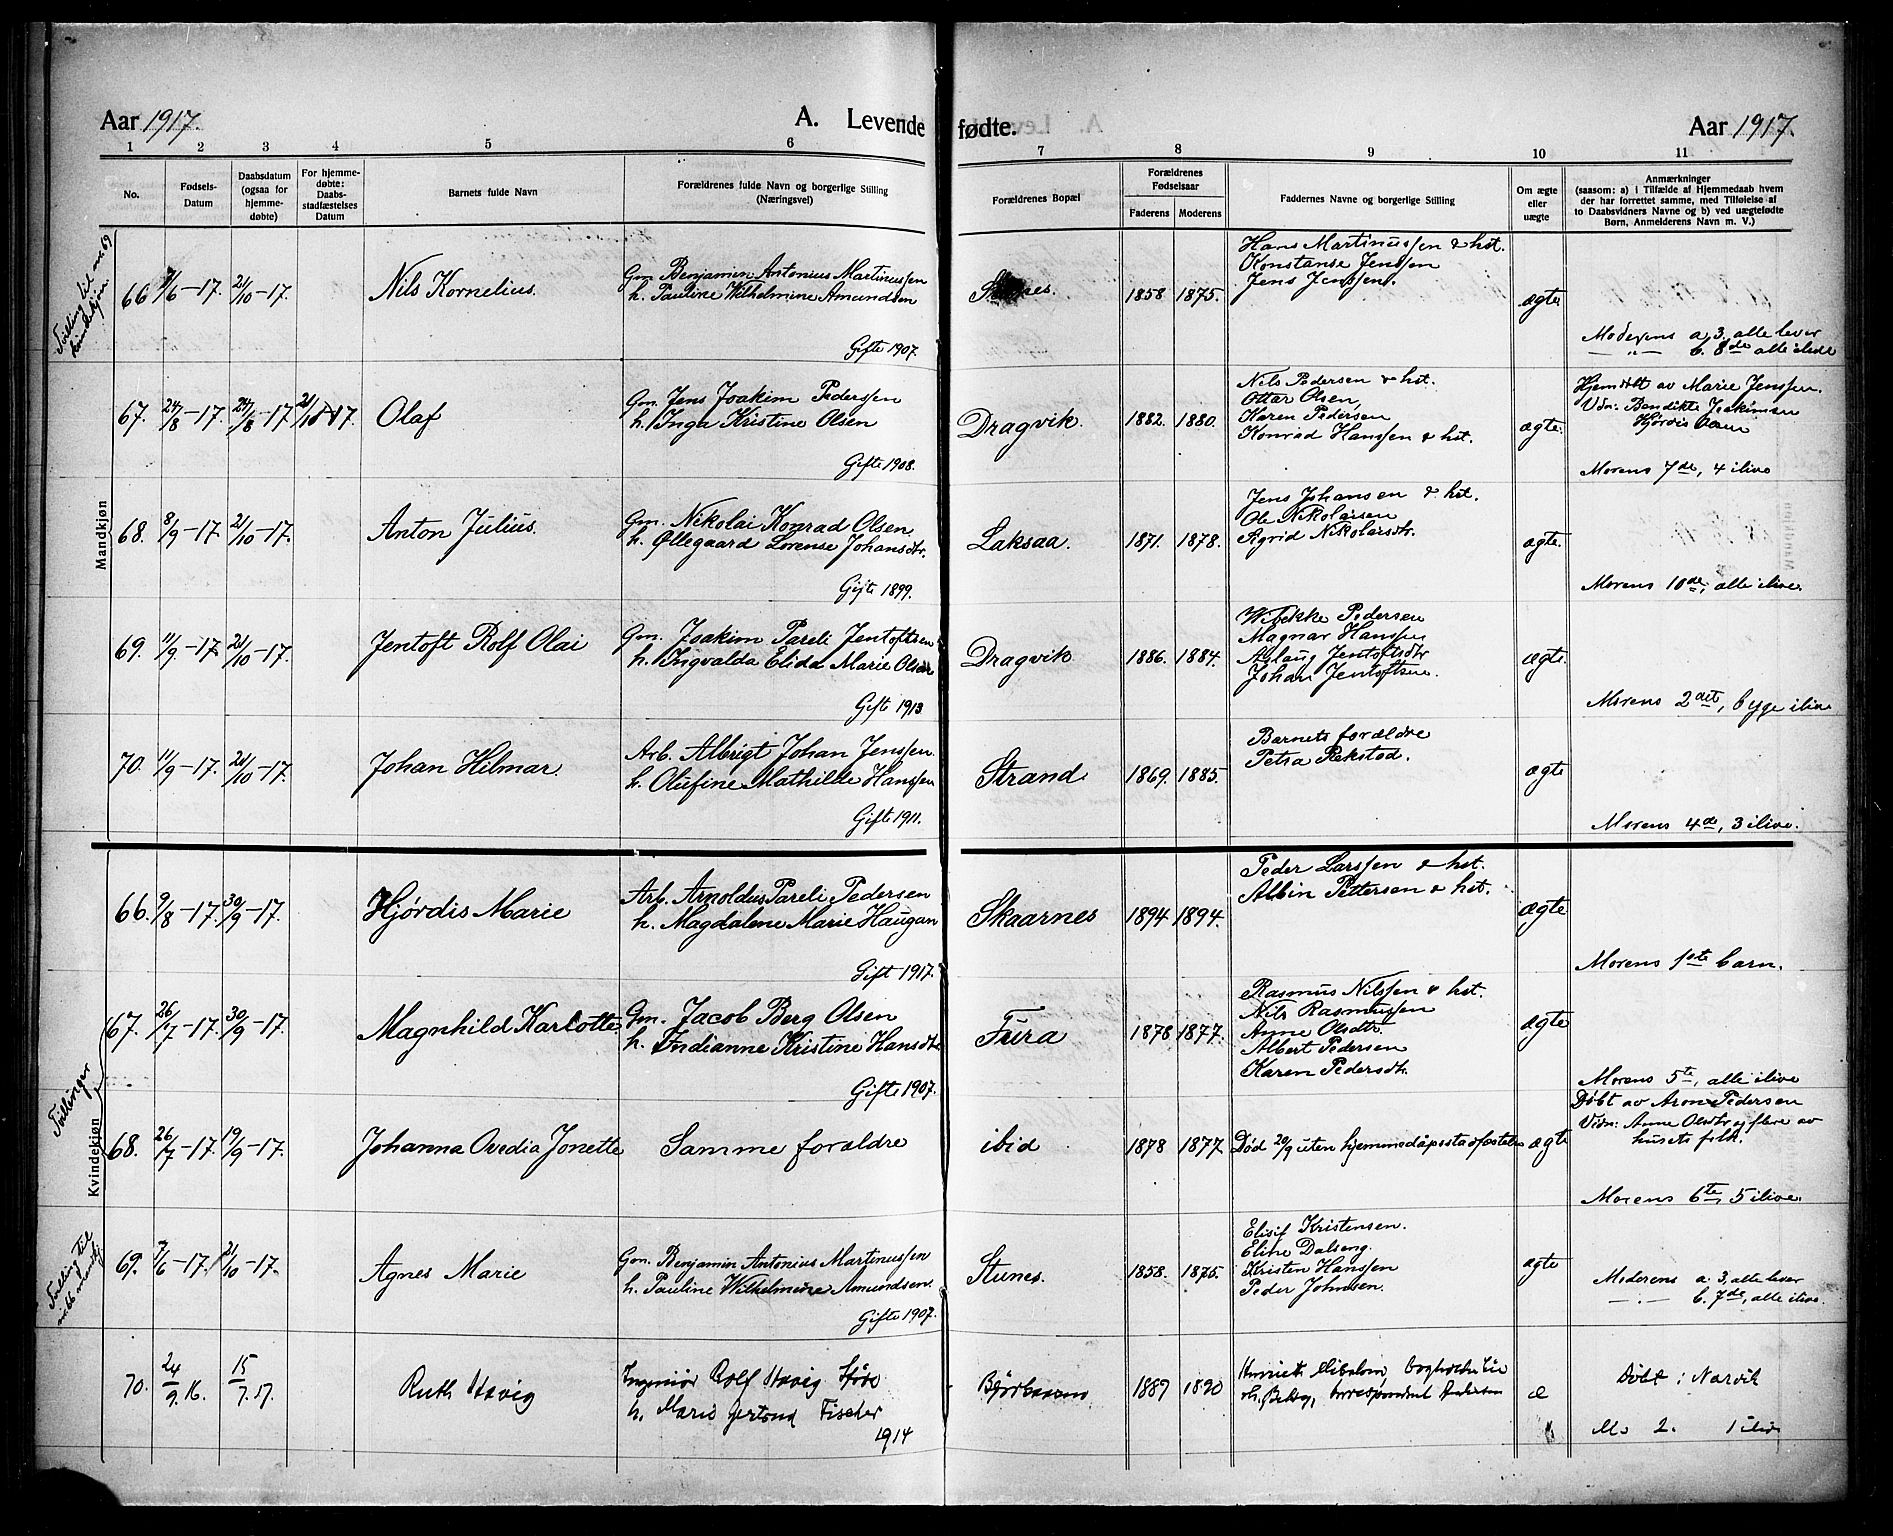 Aar 1917.
A. Levende fødte.
Aar 1917.
1 2 3 4 5 6 7 8 9 10 11
No.
Fødsels-Datum
Daabsdatum (ogsaa for hjemme-døbte)
For hjemme-døbte: Daabs-stadfæstelses Datum
Barnets fulde Navn
Forældrenes fulde Navn og borgerlige Stilling (Næringsvei)
Forældrenes Bopæl
Forældrenes Fødselsaar
Faderens Moderens
Faddernes Navne og borgerlige Stilling
Om ægte eller uægte
Anmærkninger
(saasom: a) i Tilfælde af Hjemmedaab hvem
der har forrettet samme, med Tilføielse af
to Daabsvidners Navne og b) ved uægtefødte
Børn, Anmelderens Navn m. V.)
Mandkjøn
Tvilling til no 69
kvindekjøn
66 7/6-17. 21/10-17. Nils Kornelius.
Gm. Benjamin Antonius Martinussen
h. Pauline Wilhelmine Amundsen
Gifte 1907.
1858 1875.
Hans Martinussen & hst.
Konstanse Jenssen
Jens Jenssen.
ægte
Moderens a. 3, alle lever
— „ — b. 8de alle ilive
67. 24/8-17. 24/8-17. 21/10-17. Olaf
Gm. Jens Joakim Pederssen
h. Inga Kristine Olsen
Gifte 1908.
Dragvik. 1882. 1880.
Nils Pedersen & hst.
Ottar Olsen,
Karen Pedersen
Konrad Hanssen & hst.
ægte.
Hjemdøbt av Marie Jenssen.
Vdn: Bendikte Joakimsen
Hjørdis
Morens 7de, 4 ilive
68. 8/9-17. 21/10-17. Anton Julius.
Gm. Nikolai Konrad Olsen
h. Øllegaard Lorense Johansdtr.
Gifte 1899.
Laksaa. 1871. 1878.
Jens Johansen & hst.
Ole Nikolaisen
Sigrid Nikolaisdtr.
ægte.
Morens 10de, alle ilive.
69. 11/9-17. 21/10-17. Jentoft Rolf Olai
Gm. Joakim Pareli Jentoftsen
h. Ingvalda Elida Marie Olsen
Gifte 1913
Dragvik 1886. 1884.
Wibekke Pedersen
Magnar Hanssen
Aslaug Jentoftsdtr
Johan Jentoftsen.
ægte.
Morens 2det, begge ilive
70. 11/9-17. 21/10-17. Johan Hilmar.
Arb. Albrigt Johan Jenssen.
h. Olufine Mathilde Hanssen
Gifte 1911.
Strand 1869. 1885.
Barnets forældre
Petra Rekstad.
ægte
Morens 4de, 3 ilive.
Kvindekjøn
66. 9/8-17. 30/9-17. Hjørdis Marie
Arb. Arnoldus Pareli Pedersen
h. Magdalene Marie Haugan
Gift 1917.
Skaarnes 1894 1894.
Peder Larssen & hst.
Albin Pettersen & hst.
ægte
Morens 1ste barn.
Tvillinger
67. 26/7-17. 30/9-17. Magnhild Karlotte
Gm. Jacob Berg Olsen
h. Indianne Kristine Hansdtr
Gifte 1907.
Fura 1878 1877.
Rasmus Nilssen & hst.
Nils Rasmussen
Anne Olsdtr.
Albert Pedersen
Karen Pedersdtr.
ægte
Morens 5te, alle ilive
68. 26/7-17. 19/9-17. Johanna Ovedia Jonette
Samme forældre
ibid 1878 1877
Død 20/9 uten hjemmedåpsstadfæstelse
ægte
Døbt av Aron Pedersen
Vidn: Anne Olsdtr og flere av
husets folk.
Morens 6te, 5 ilive.
Tvilling til
no 66 mandkj
69. 7/6-17. 21/10-17. Agnes Marie
Gm. Benjamin Antonius Martinussen
h. Pauline Wilhelmine Amundsen.
Gifte 1907.
Stunes. 1858. 1875.
Elisif Kristensen.
Eline Dalseng.
Kristen Hanssen
Peder Johnsen.
ægte
Moderens a. 3, alle lever
— „ — b. 7de, alle ilive.
70. 24/9 16. 15/7 17. Ruth Høvig
Ingeniør Rolf Høvig
h. Marie Gertrud Fischer
1914
1889 1890
æ
Døbt i Narvik
M. 2. 1 ilive